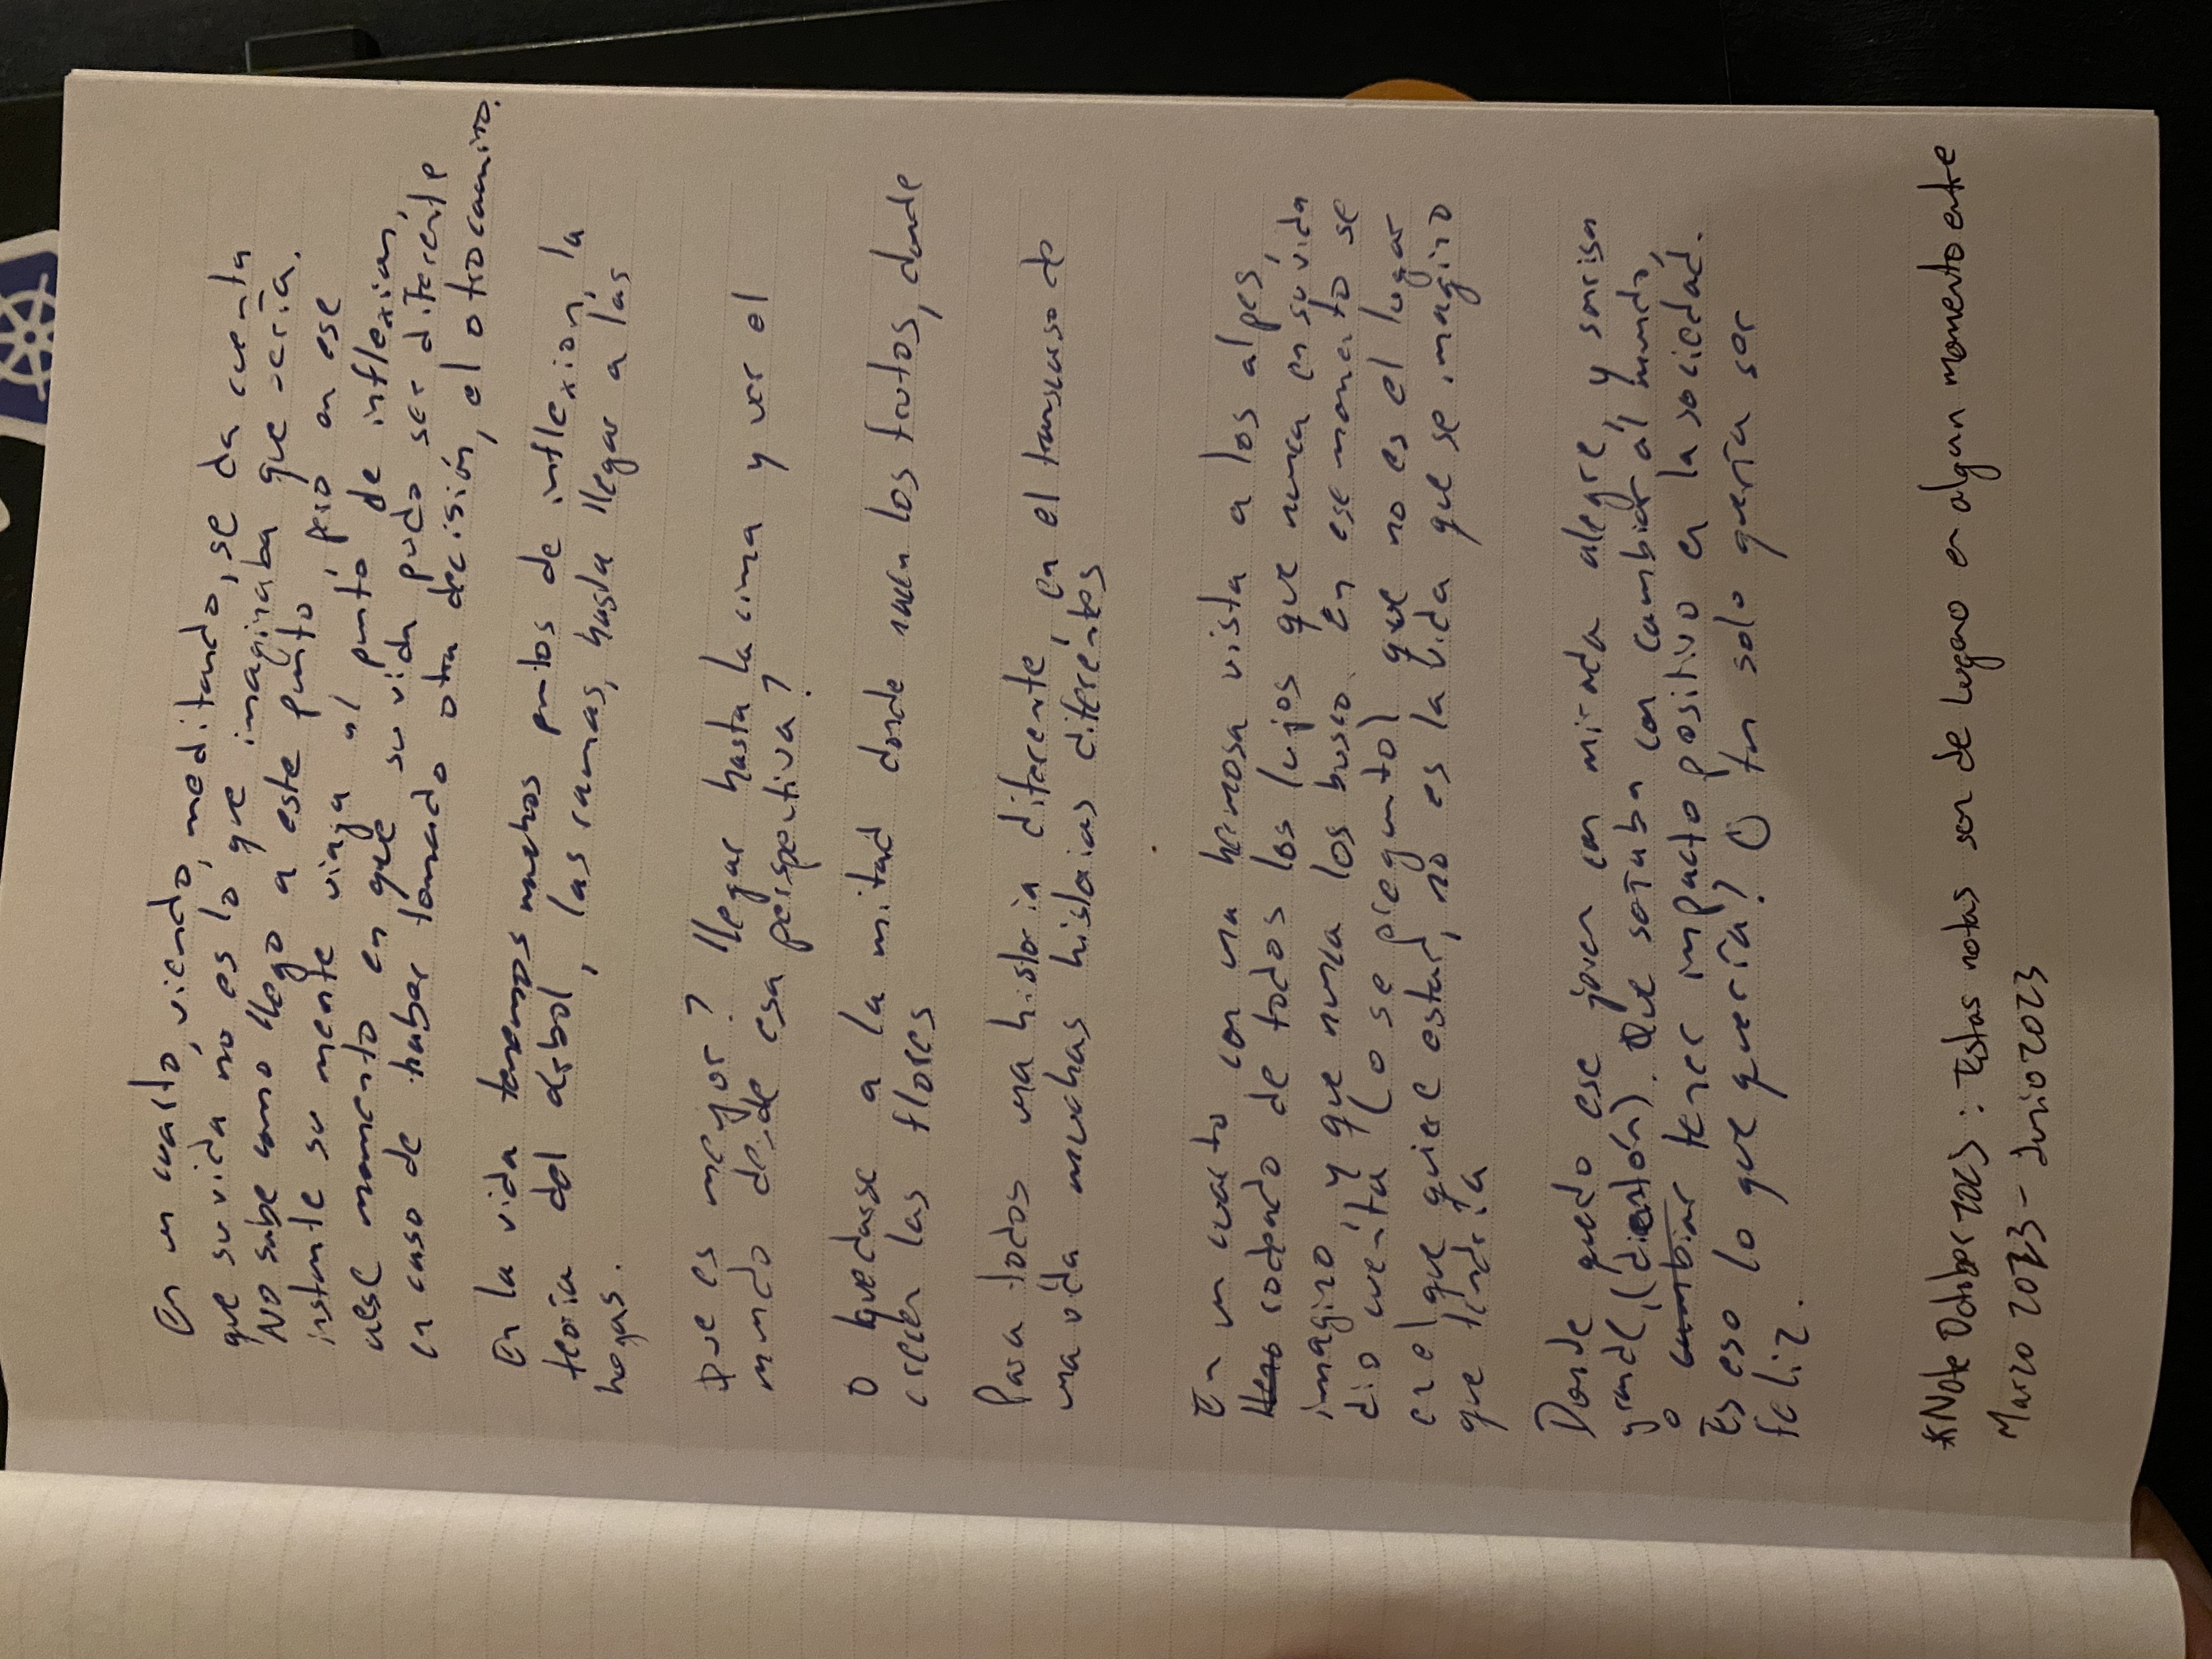 En un cuarto, viendo, meditando, se da cuenta
que su vida no es lo que imaginaba que sería.
No sabe como llego a este punto, pero en ese
instante su mente viaja al punto de inflexion,
a ese momento en que su vida pudo ser diferente
en caso de haber tomado otra decisión, el otro camino.
En la vida tenemos muchos puntos de inflexion, la
teoría del árbol, las ramas, hasta llegar a las
hojas.
Que es mejor? llegar hasta la cima y ver el
mundo desde esa perspectiva?
O quedarse a la mitad donde nacen los frutos, donde
crecen las flores
Para todos una historia diferente, en el transcurso de
una vida muchas historias diferentes
En un cuarto con una hermosa vista a los alpes,
rodeado de todos los lujos que nunca en su vida
imagino, y que nunca los busco. En ese momento se
dio cuenta (o se pregunto) que no es el lugar
en el que quiere estar, no es la vida que se imagino
que tendría
Donde quedo ese joven con mirada alegre, y sonrisa
grande, (dientón). Que soñaba con cambiar al mundo,
o cambiar tener impacto positivo en la sociedad.
Es eso lo que quería? O tan solo quería ser
feliz.
*Note October 2023: Estas notas son de Lugano en algun momento entre
Marzo 2023 - Junio 2023